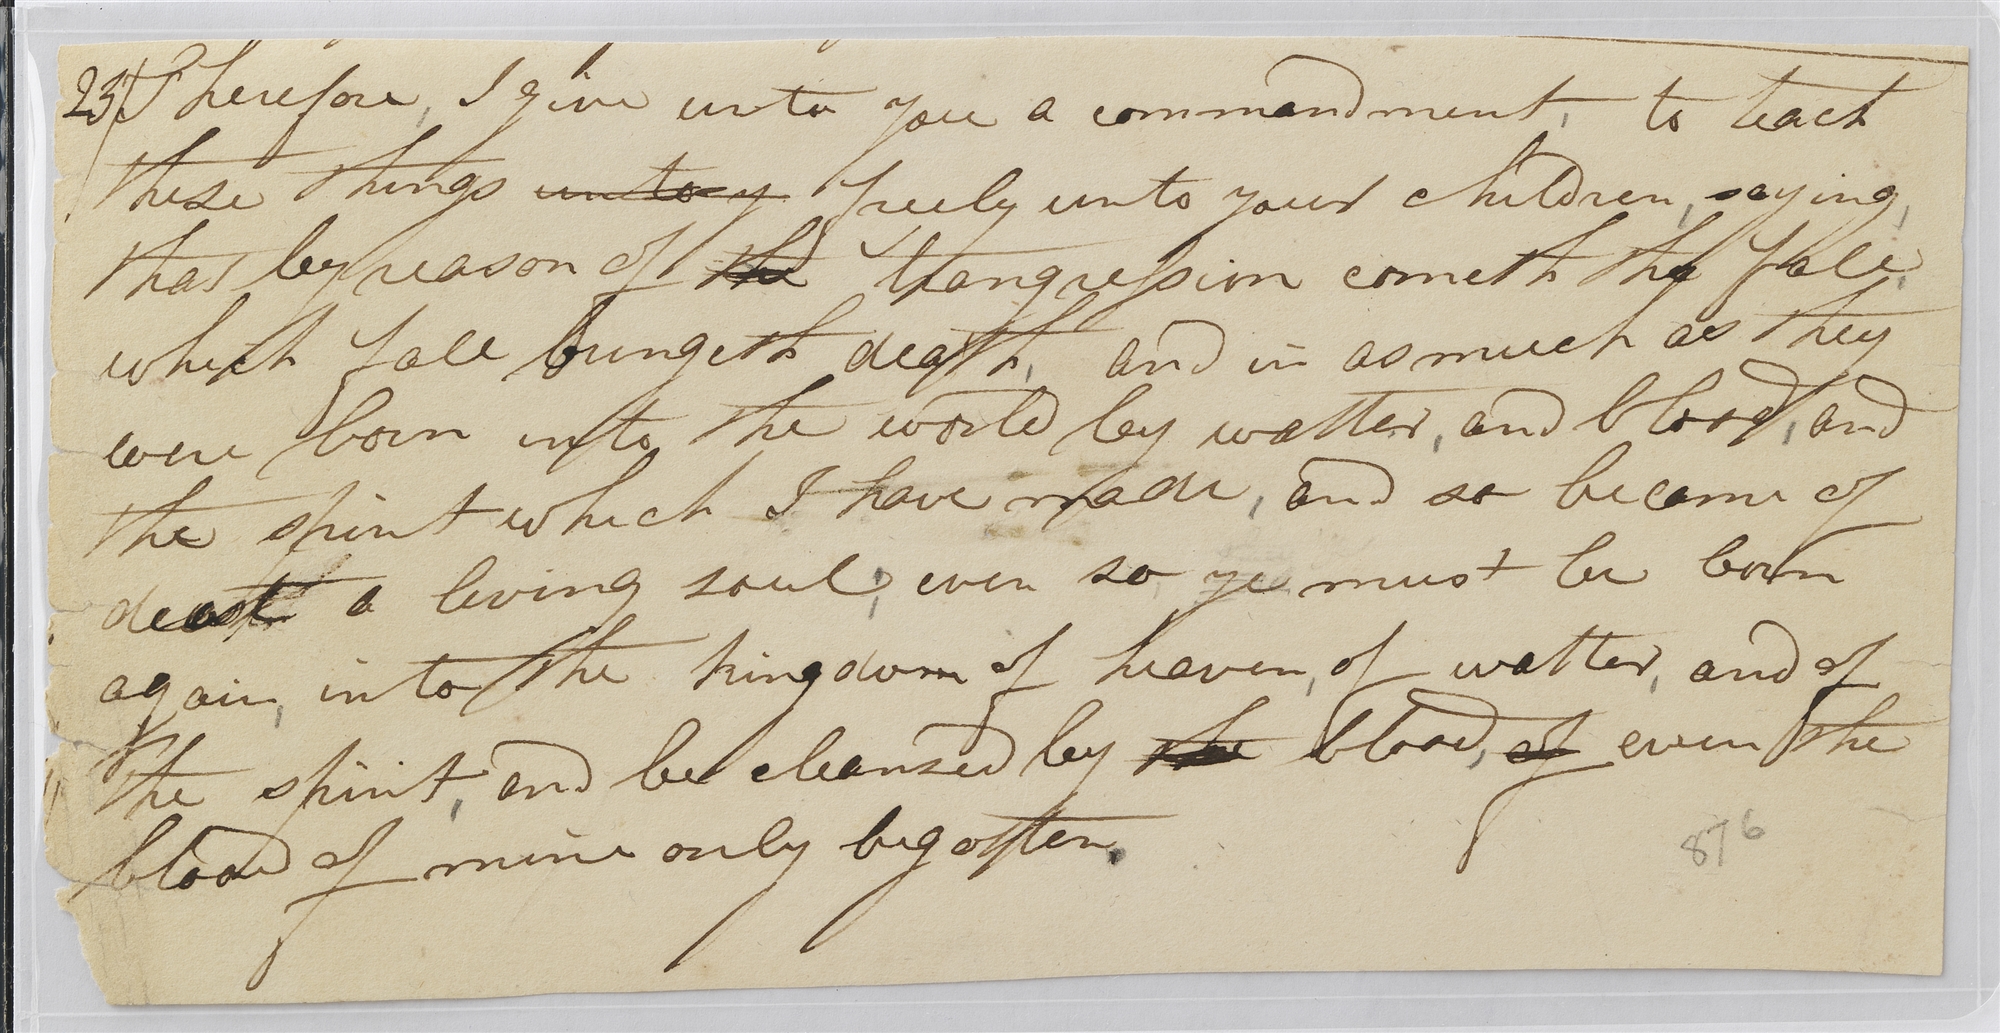 23 Therefore, I give unto you a commandment, to teach
these things unto y freely unto your children, saying,
that by reason of the trangression cometh the fall,
which fall bringeth death, and in as much as they
were born into the world by watter, and blood, and
the spirit which I have made, and so became of
dust a living soul, even so ye must be born
again, into the kingdom of heaven, of watter, and of
the spirit, and be cleansed by the blood, of even the
blood of mine only begotten.
876